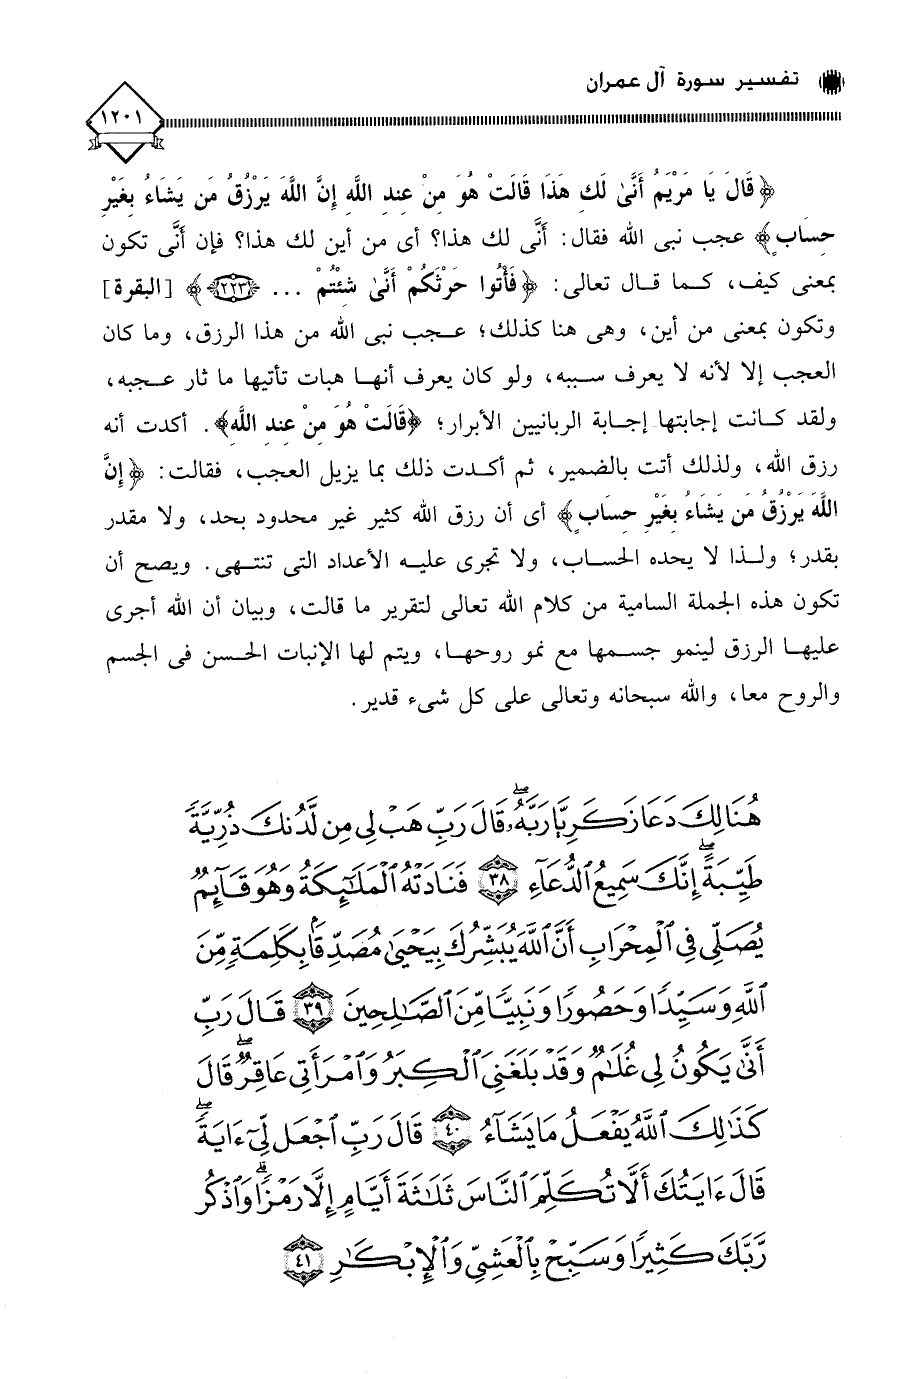 تفسير سورة آل عمران
١٢٠١
﴿ قَالَ يَا مَرْيَمُ أَنَّىٰ لَكِ هَذَا قَالَتْ هُوَ مِنْ عِندِ اللَّهِ إِنَّ اللَّهَ يَرْزُقُ مَن يَشَاءُ بِغَيْرِ
حِسَابٍ ﴾ عجب نبى الله فقال: أَنَّى لك هذا؟ أى من أين لك هذا؟ فإن أَنَّى تكون
بمعنى كيف، كما قال تعالى: ﴿ فَأْتُوا حَرْثَكُمْ أَنَّىٰ شِئْتُمْ ... ﴿٢٢٣﴾ ﴾ [البقرة]
وتكون بمعنى من أين، وهى هنا كذلك؛ عجب نبى الله من هذا الرزق، وما كان
العجب إلا لأنه لا يعرف سببه، ولو كان يعرف أنها هبات تأتيها ما ثار عجبه،
ولقد كانت إجابتها إجابة الربانيين الأبرار؛ ﴿قَالَتْ هُوَ مِنْ عِندِ اللَّهِ﴾. أكدت أنه
رزق الله، ولذلك أتت بالضمير، ثم أكدت ذلك بما يزيل العجب، فقالت: ﴿ إِنَّ
اللَّهَ يَرْزُقُ مَن يَشَاءُ بِغَيْرِ حِسَابٍ ﴾ أى أن رزق الله كثير غير محدود بحد، ولا مقدر
بقدر؛ ولذا لا يحده الحساب، ولا تجرى عليه الأعداد التى تنتهى. ويصح أن
تكون هذه الجملة السامية من كلام الله تعالى لتقرير ما قالت، وبيان أن الله أجرى
عليها الرزق لينمو جسمها مع نمو روحها، ويتم لها الإنبات الحسن فى الجسم
والروح معا، والله سبحانه وتعالى على كل شىء قدير.
هُنَالِكَ دَعَا زَكَرِيَّا رَبَّهُۥۖ قَالَ رَبِّ هَبْ لِى مِن لَّدُنكَ ذُرِّيَّةً
طَيِّبَةًۖ إِنَّكَ سَمِيعُ ٱلدُّعَآءِ ٣٨ فَنَادَتْهُ ٱلْمَلَٰٓئِكَةُ وَهُوَ قَآئِمٌ
يُصَلِّى فِى ٱلْمِحْرَابِ أَنَّ ٱللَّهَ يُبَشِّرُكَ بِيَحْيَىٰ مُصَدِّقًۢا بِكَلِمَةٍ مِّنَ
ٱللَّهِ وَسَيِّدًا وَحَصُورًا وَنَبِيًّا مِّنَ ٱلصَّٰلِحِينَ ٣٩ قَالَ رَبِّ
أَنَّىٰ يَكُونُ لِى غُلَٰمٌ وَقَدْ بَلَغَنِىَ ٱلْكِبَرُ وَٱمْرَأَتِى عَاقِرٌۖ قَالَ
كَذَٰلِكَ ٱللَّهُ يَفْعَلُ مَا يَشَآءُ ٤٠ قَالَ رَبِّ ٱجْعَل لِّىٓ ءَايَةًۖ
قَالَ ءَايَتُكَ أَلَّا تُكَلِّمَ ٱلنَّاسَ ثَلَٰثَةَ أَيَّامٍ إِلَّا رَمْزًاۗ وَٱذْكُر
رَّبَّكَ كَثِيرًا وَسَبِّحْ بِٱلْعَشِىِّ وَٱلْإِبْكَٰرِ ٤١